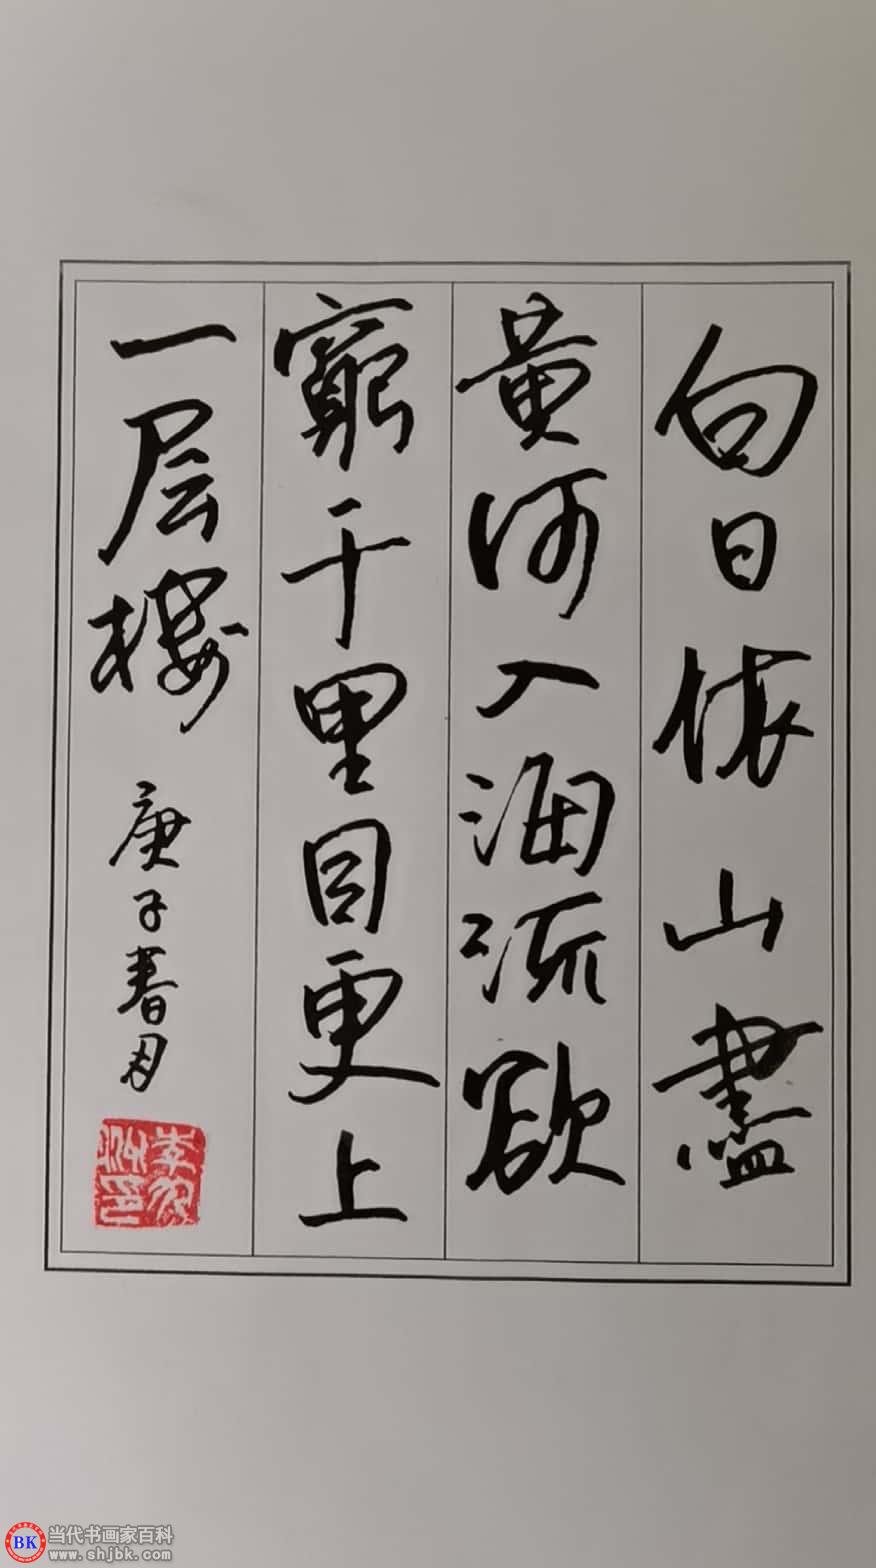 白日依山盡
黃河入海流欲
窮千里目更上
一层樓 庚子春月
BK 当代书画家百科
www.shjbk.com